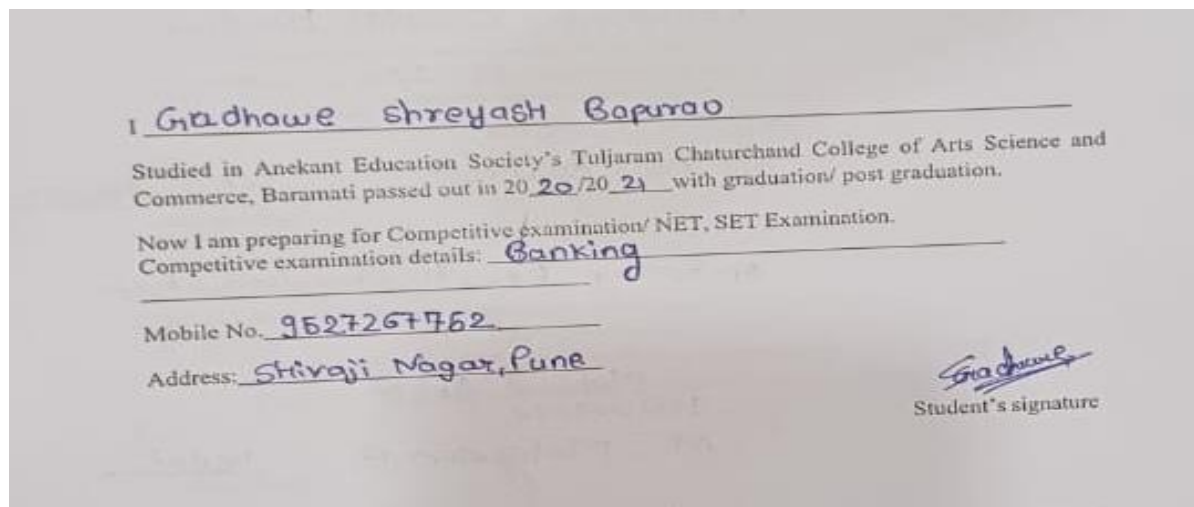 I Gadhawe shreyash Bapurao
Studied in Anekant Education Society's Tuljaram Chaturchand College of Arts Science and
Commerce, Baramati passed out in 2020/2021 with graduation/ post graduation.
Now I am preparing for Competitive examination/ NET, SET Examination.
Competitive examination details: Banking
Mobile No. 9527267752
Address: Shivaji Nagar, Pune
Gadhawe
Student's signature